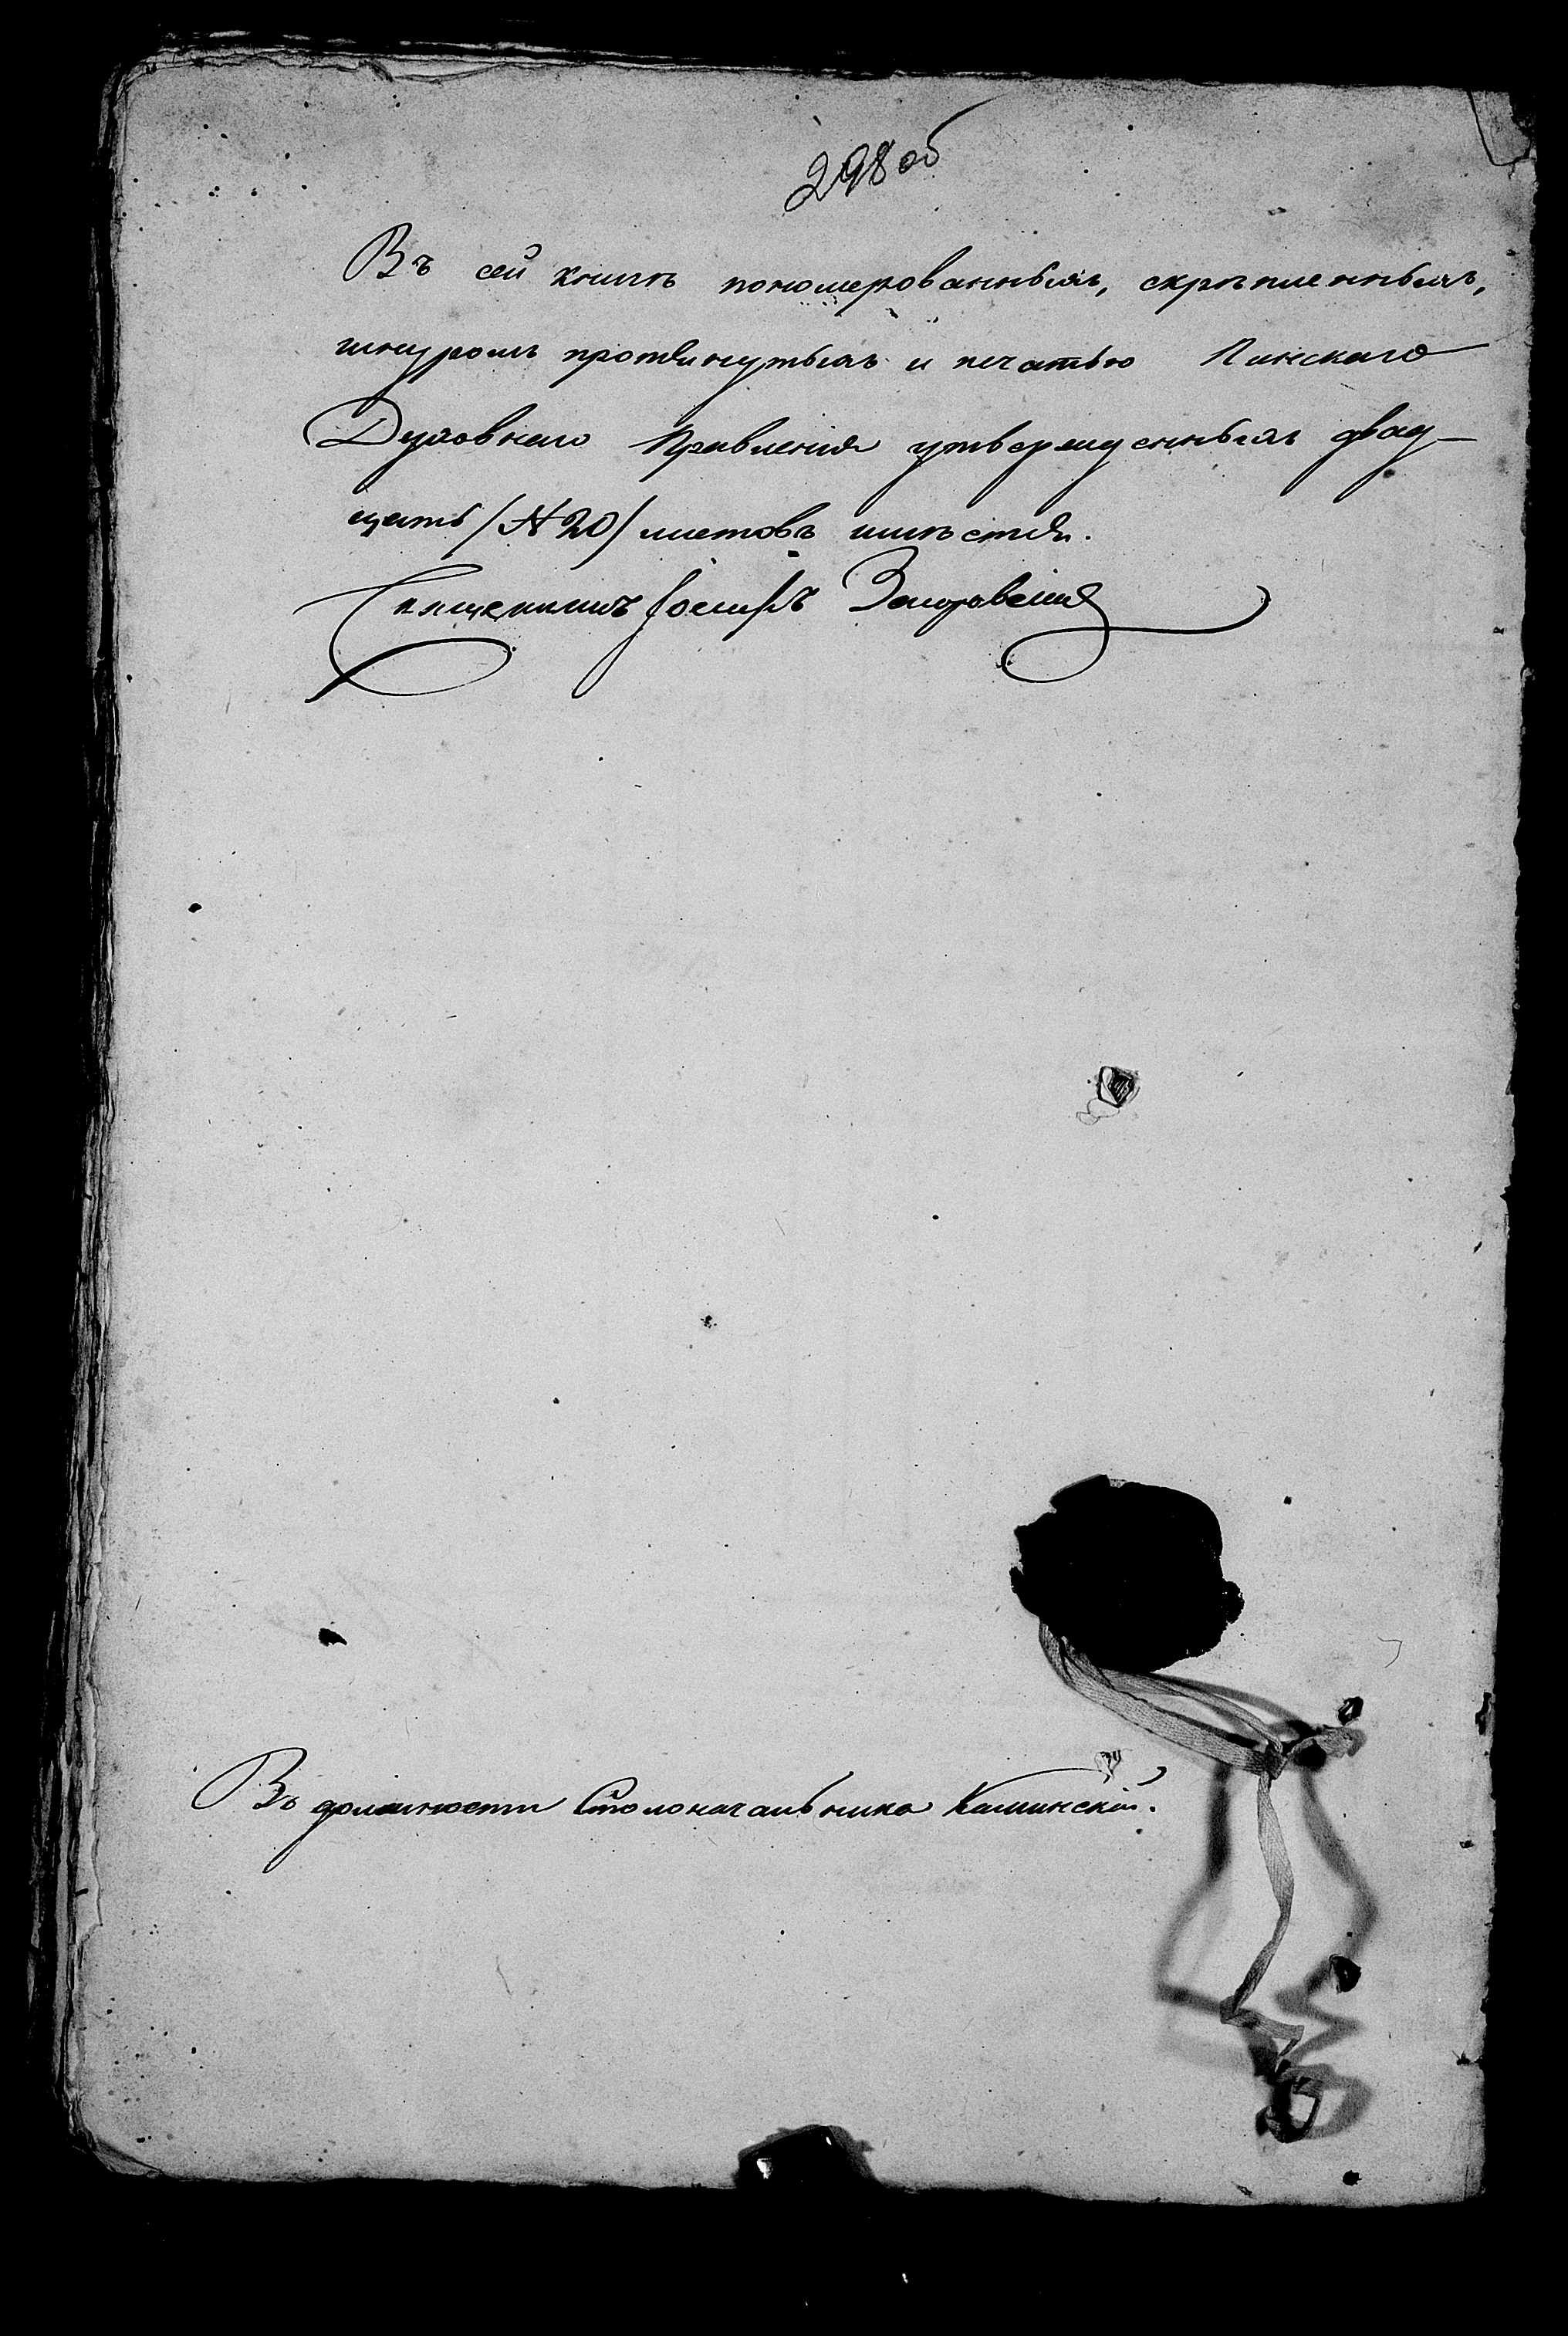 298 об
Въ сей книгѣ пономерованныхъ, скрѣпленныхъ,
шнуромъ протянутыхъ и печатью Пинскаго
Духовнаго Правленія утвержденныхъ двад-
цать /№ 20/ листовъ имѣется.
Священникъ Іосифъ
Въ должности Столоначальника Каминскій.